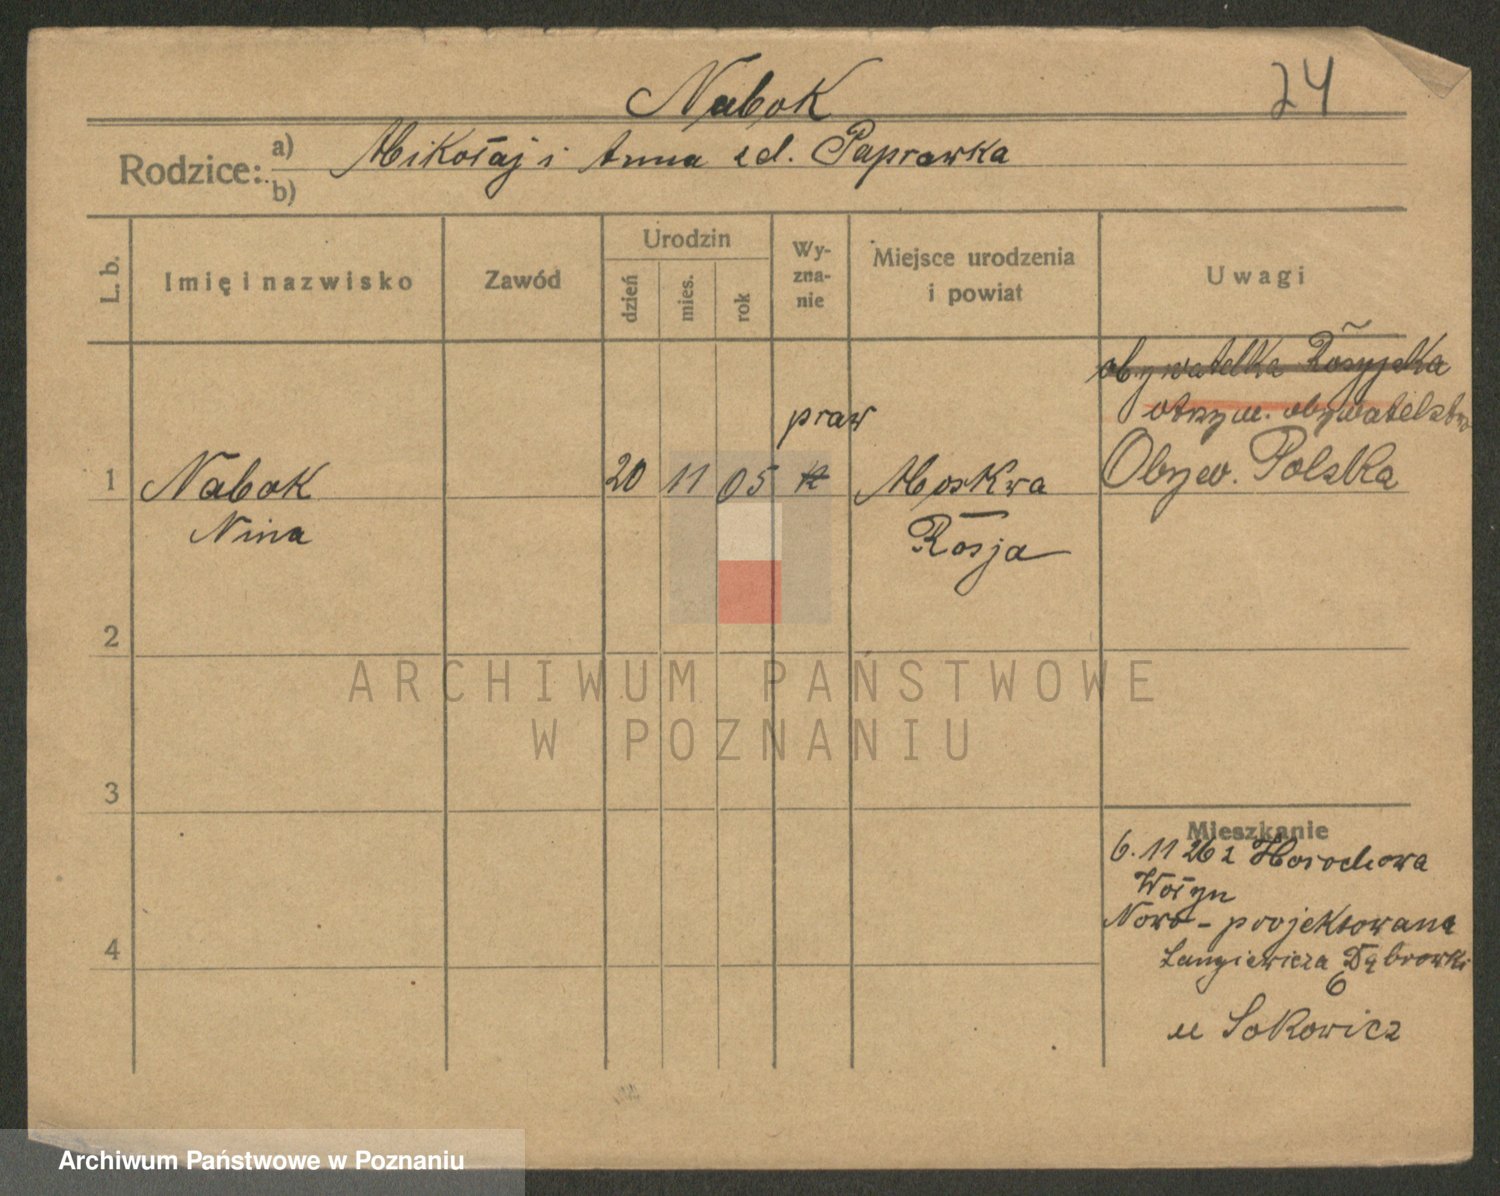 Nabok
24
Rodzice: a) Mikołaj i Anna zd. Paprawka
b)
L. b.
Imię i nazwisko
Zawód
Urodzin
dzień
mies.
rok
Wy-
zna-
nie
Miejsce urodzenia
i powiat
Uwagi
obywatelka Rosyjska
otrzym. obywatelstwo
praw
1 Nabok 20 11 05 k Moskwa Obyw. Polska
Nina Rosja
2
3
4
Mieszkanie
6. 11 26 z Horochowa
Wołyn
Nowo-projektowana
Langiewicza Dąbrowki
6
u Sokowicz
ARCHIWUM PAŃSTWOWE
W POZNANIU
Archiwum Państwowe w Poznaniu